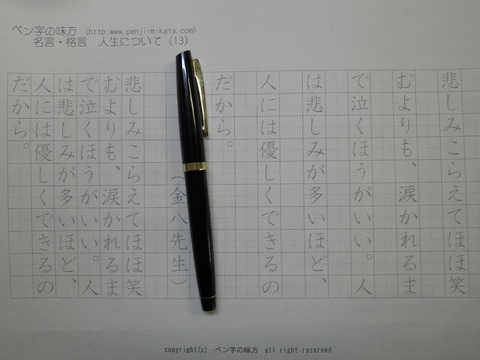 ペン字の味方 (http:www.penji-mikata.com)
名言・格言 人生について(13)
悲しみこらえてほほ笑
むよりも、涙かれるま
で泣くほうがいい。人
は悲しみが多いほど、
人には優しくできるの
だから。
(金八先生)
悲しみこらえてほほ笑
むよりも、涙かれるま
で泣くほうがいい。人
は悲しみが多いほど、
人には優しくできるの
だから。
copyright(c) ペン字の味方 all right reserved